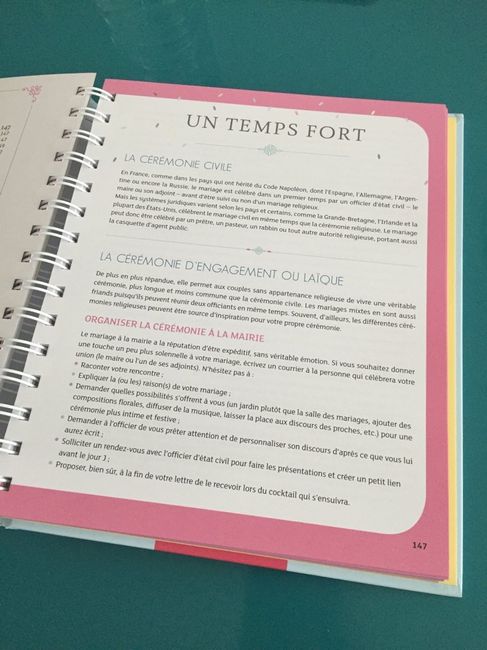 UN TEMPS FORT
LA CÉRÉMONIE CIVILE
En France, comme dans les pays qui ont hérité du Code Napoléon, dont l'Espagne, l'Allemagne, l'Argen-
tine ou encore la Russie, le mariage est célébré dans un premier temps par un officier d'état civil – le
maire ou son adjoint – avant d'être suivi ou non d'un mariage religieux.
Mais les systèmes juridiques varient selon les pays et certains, comme la Grande-Bretagne, l'Irlande et la
plupart des États-Unis, célèbrent le mariage civil en même temps que la cérémonie religieuse. Le mariage
peut donc être célébré par un prêtre, un pasteur, un rabbin ou tout autre autorité religieuse, portant aussi
la casquette d'agent public.
LA CÉRÉMONIE D'ENGAGEMENT OU LAÏQUE
De plus en plus répandue, elle permet aux couples sans appartenance religieuse de vivre une véritable
cérémonie, plus longue et moins commune que la cérémonie civile. Les mariages mixtes en sont aussi
friands puisqu'ils peuvent réunir deux officiants en même temps. Souvent, d'ailleurs, les différentes céré-
monies religieuses peuvent être source d'inspiration pour votre propre cérémonie.
ORGANISER LA CÉRÉMONIE À LA MAIRIE
Le mariage à la mairie a la réputation d'être expéditif, sans véritable émotion. Si vous souhaitez donner
une touche un peu plus solennelle à votre mariage, écrivez un courrier à la personne qui célébrera votre
union (le maire ou l'un de ses adjoints). N'hésitez pas à :
• Raconter votre rencontre ;
• Expliquer la (ou les) raison(s) de votre mariage ;
• Demander quelles possibilités s'offrent à vous (un jardin plutôt que la salle des mariages, ajouter des
compositions florales, diffuser de la musique, laisser la place aux discours des proches, etc.) pour une
cérémonie plus intime et festive ;
• Demander à l'officier de vous prêter attention et de personnaliser son discours d'après ce que vous lui
aurez écrit ;
• Solliciter un rendez-vous avec l'officier d'état civil pour faire les présentations et créer un petit lien
avant le jour J ;
• Proposer, bien sûr, à la fin de votre lettre de le recevoir lors du cocktail qui s'ensuivra.
147